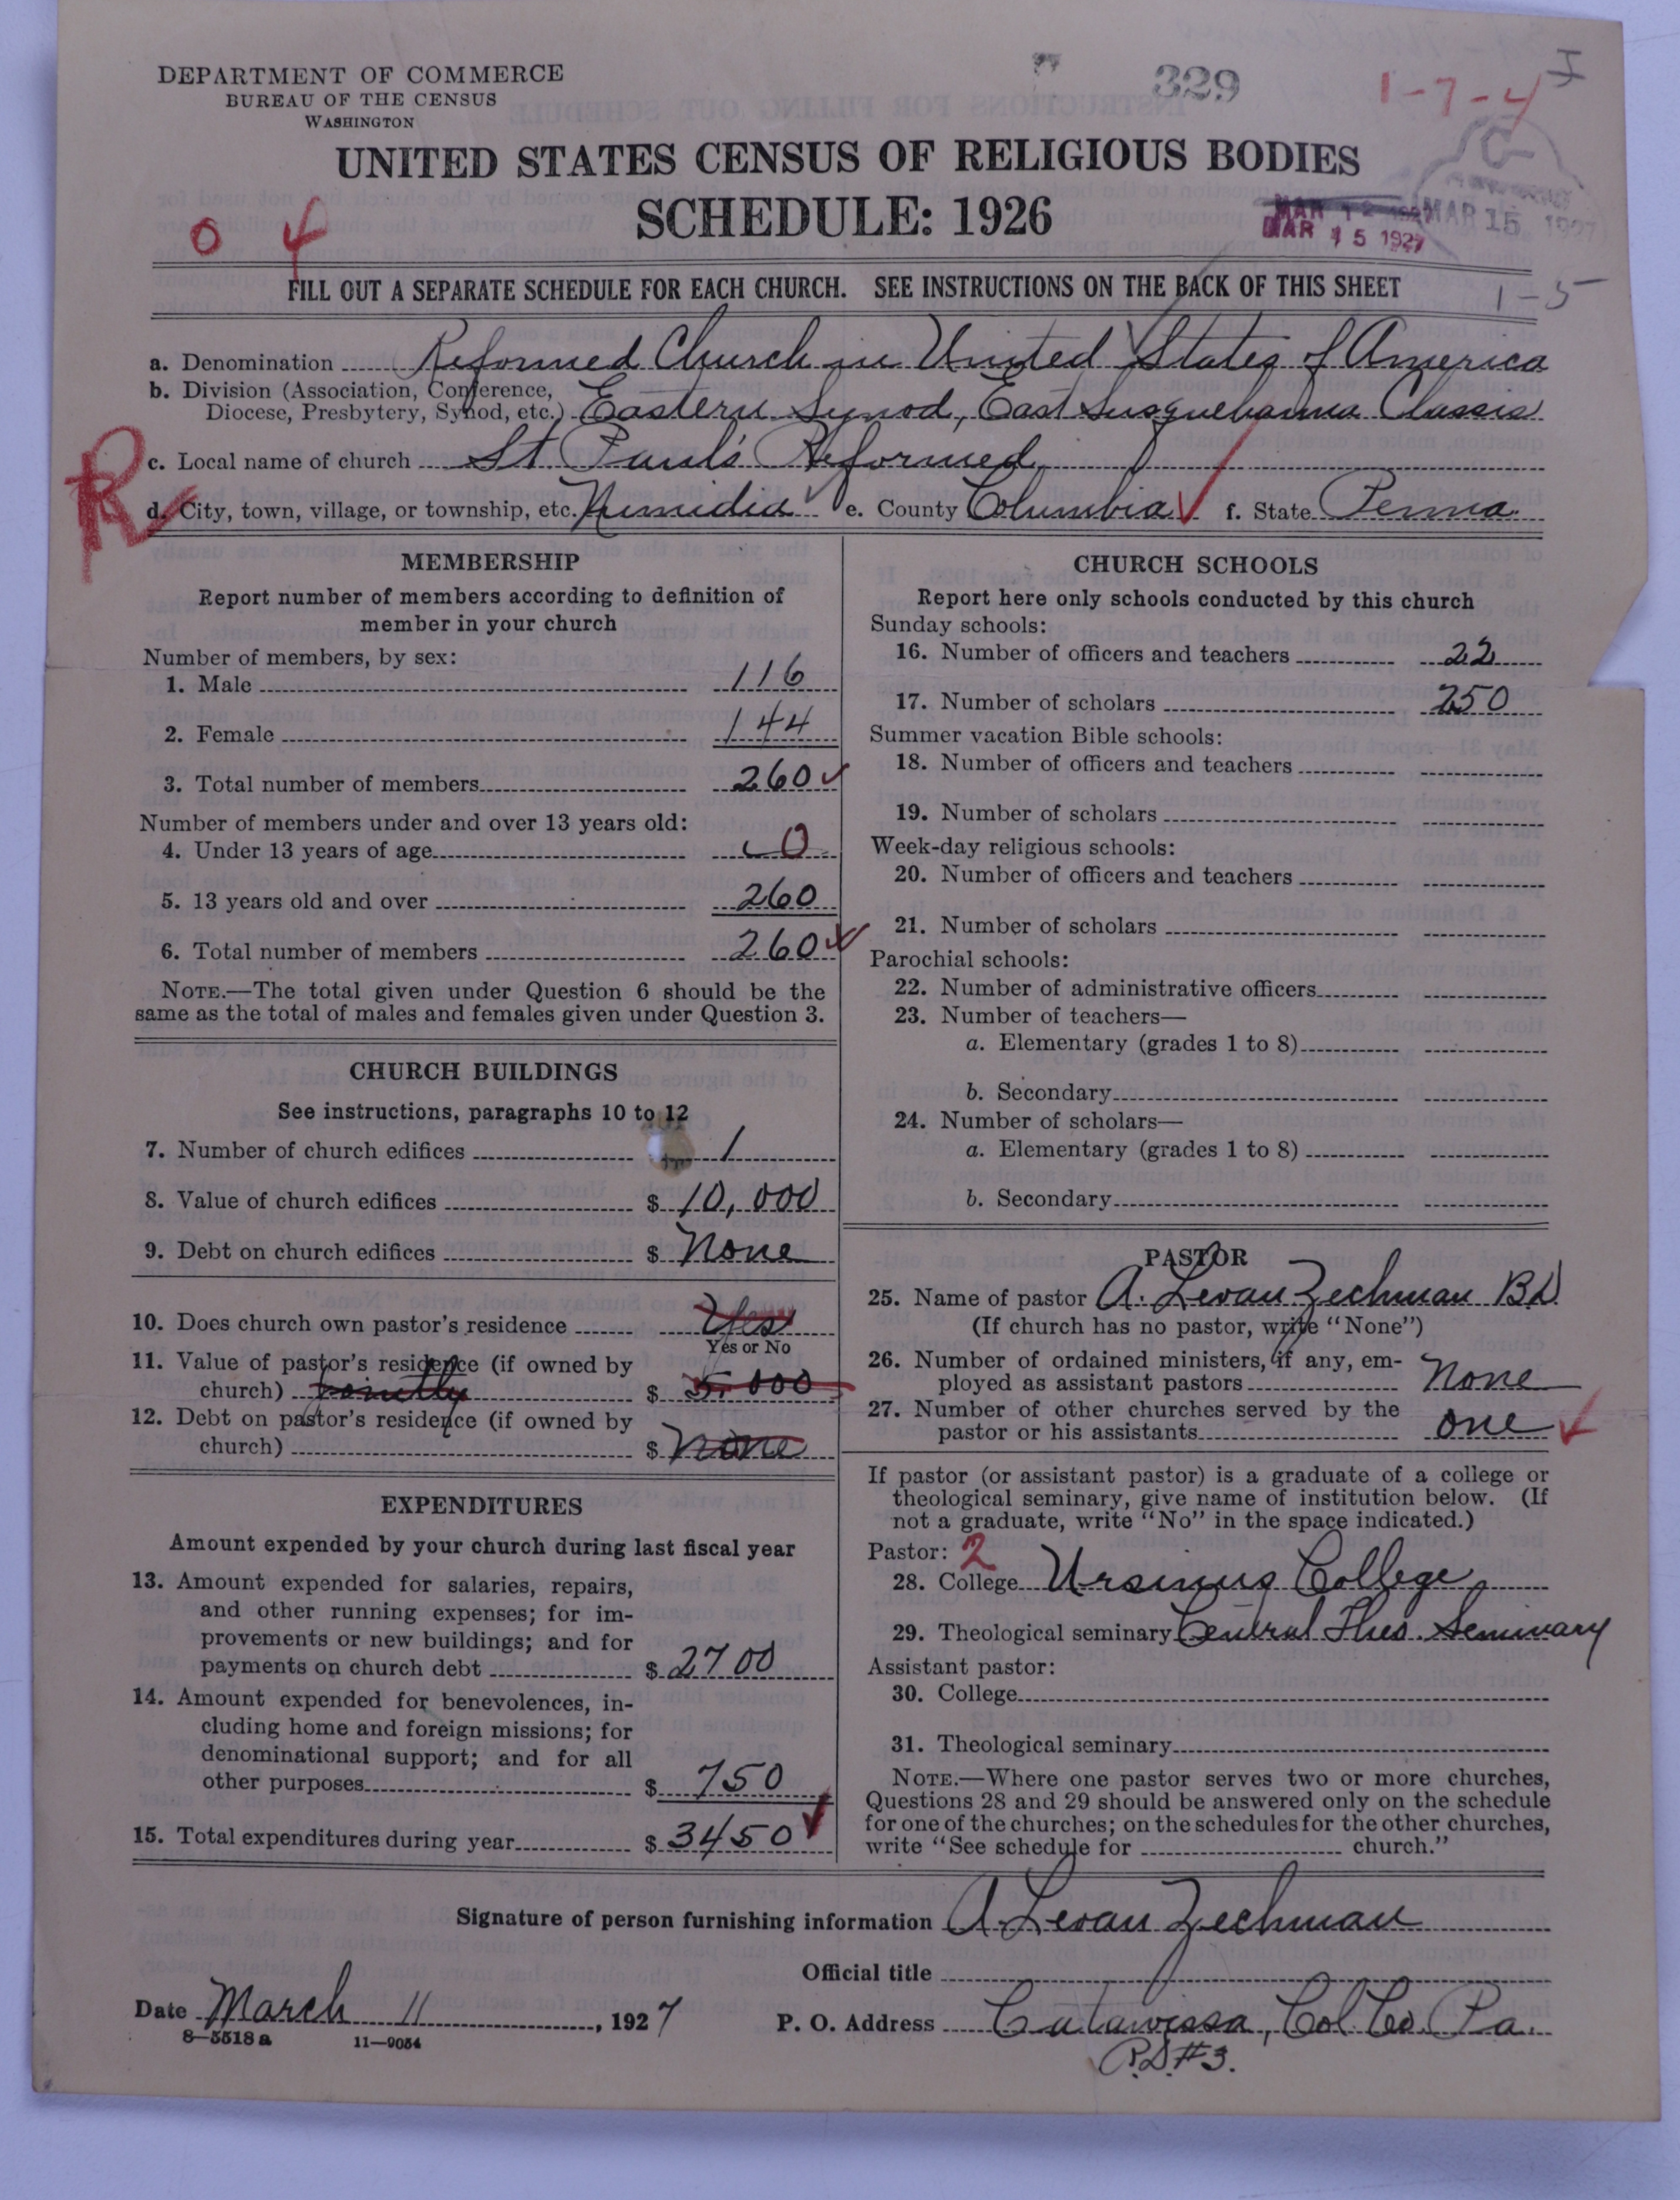 DEPARTMENT OF COMMERCE
BUREAU OF THE CENSUS
WASHINGTON
329
1-7-4
UNITED STATES CENSUS OF RELIGIOUS BODIES
SCHEDULE: 1926
MAR 12 1927
MAR 15 1927
MAR 15 1927
0 4
FILL OUT A SEPARATE SCHEDULE FOR EACH CHURCH. SEE INSTRUCTIONS ON THE BACK OF THIS SHEET
1-5
a. Denomination Reformed Church in United States of America
b. Division (Association, Conference,
Diocese, Presbytery, Synod, etc.) Eastern Synod, East Susquehanna Classis
c. Local name of church St Paul's Reformed
R
d. City, town, village, or township, etc. Numidia e. County Columbia f. State Penna
MEMBERSHIP
Report number of members according to definition of
member in your church
Number of members, by sex:
1. Male 116
2. Female 144
3. Total number of members 260
Number of members under and over 13 years old:
4. Under 13 years of age 0
5. 13 years old and over 260
6. Total number of members 260
NOTE.—The total given under Question 6 should be the
same as the total of males and females given under Question 3.
CHURCH BUILDINGS
See instructions, paragraphs 10 to 12
7. Number of church edifices 1
8. Value of church edifices $ 10,000
9. Debt on church edifices $ None
10. Does church own pastor's residence Yes
Yes or No
11. Value of pastor's residence (if owned by
church) jointly $ 5.000
12. Debt on pastor's residence (if owned by
church) $ None
EXPENDITURES
Amount expended by your church during last fiscal year
13. Amount expended for salaries, repairs,
and other running expenses; for im-
provements or new buildings; and for
payments on church debt $ 2700
14. Amount expended for benevolences, in-
cluding home and foreign missions; for
denominational support; and for all
other purposes $ 750
15. Total expenditures during year $ 3450
CHURCH SCHOOLS
Report here only schools conducted by this church
Sunday schools:
16. Number of officers and teachers 22
17. Number of scholars 250
Summer vacation Bible schools:
18. Number of officers and teachers
19. Number of scholars
Week-day religious schools:
20. Number of officers and teachers
21. Number of scholars
Parochial schools:
22. Number of administrative officers
23. Number of teachers—
a. Elementary (grades 1 to 8)
b. Secondary
24. Number of scholars—
a. Elementary (grades 1 to 8)
b. Secondary
PASTOR
25. Name of pastor A. Levan Zechman BD
(If church has no pastor, write "None")
26. Number of ordained ministers, if any, em-
ployed as assistant pastors None
27. Number of other churches served by the
pastor or his assistants one
If pastor (or assistant pastor) is a graduate of a college or
theological seminary, give name of institution below. (If
not a graduate, write "No" in the space indicated.)
Pastor: 2
28. College Ursinus College
29. Theological seminary Central Theo. Seminary
Assistant pastor:
30. College
31. Theological seminary
NOTE.—Where one pastor serves two or more churches,
Questions 28 and 29 should be answered only on the schedule
for one of the churches; on the schedules for the other churches,
write "See schedule for church."
Signature of person furnishing information A. Levan Zechman
Official title
Date March 11, 1927 P. O. Address Catawissa, Col. Co. Pa.
8-5518a 11-9054 R.D. #3.